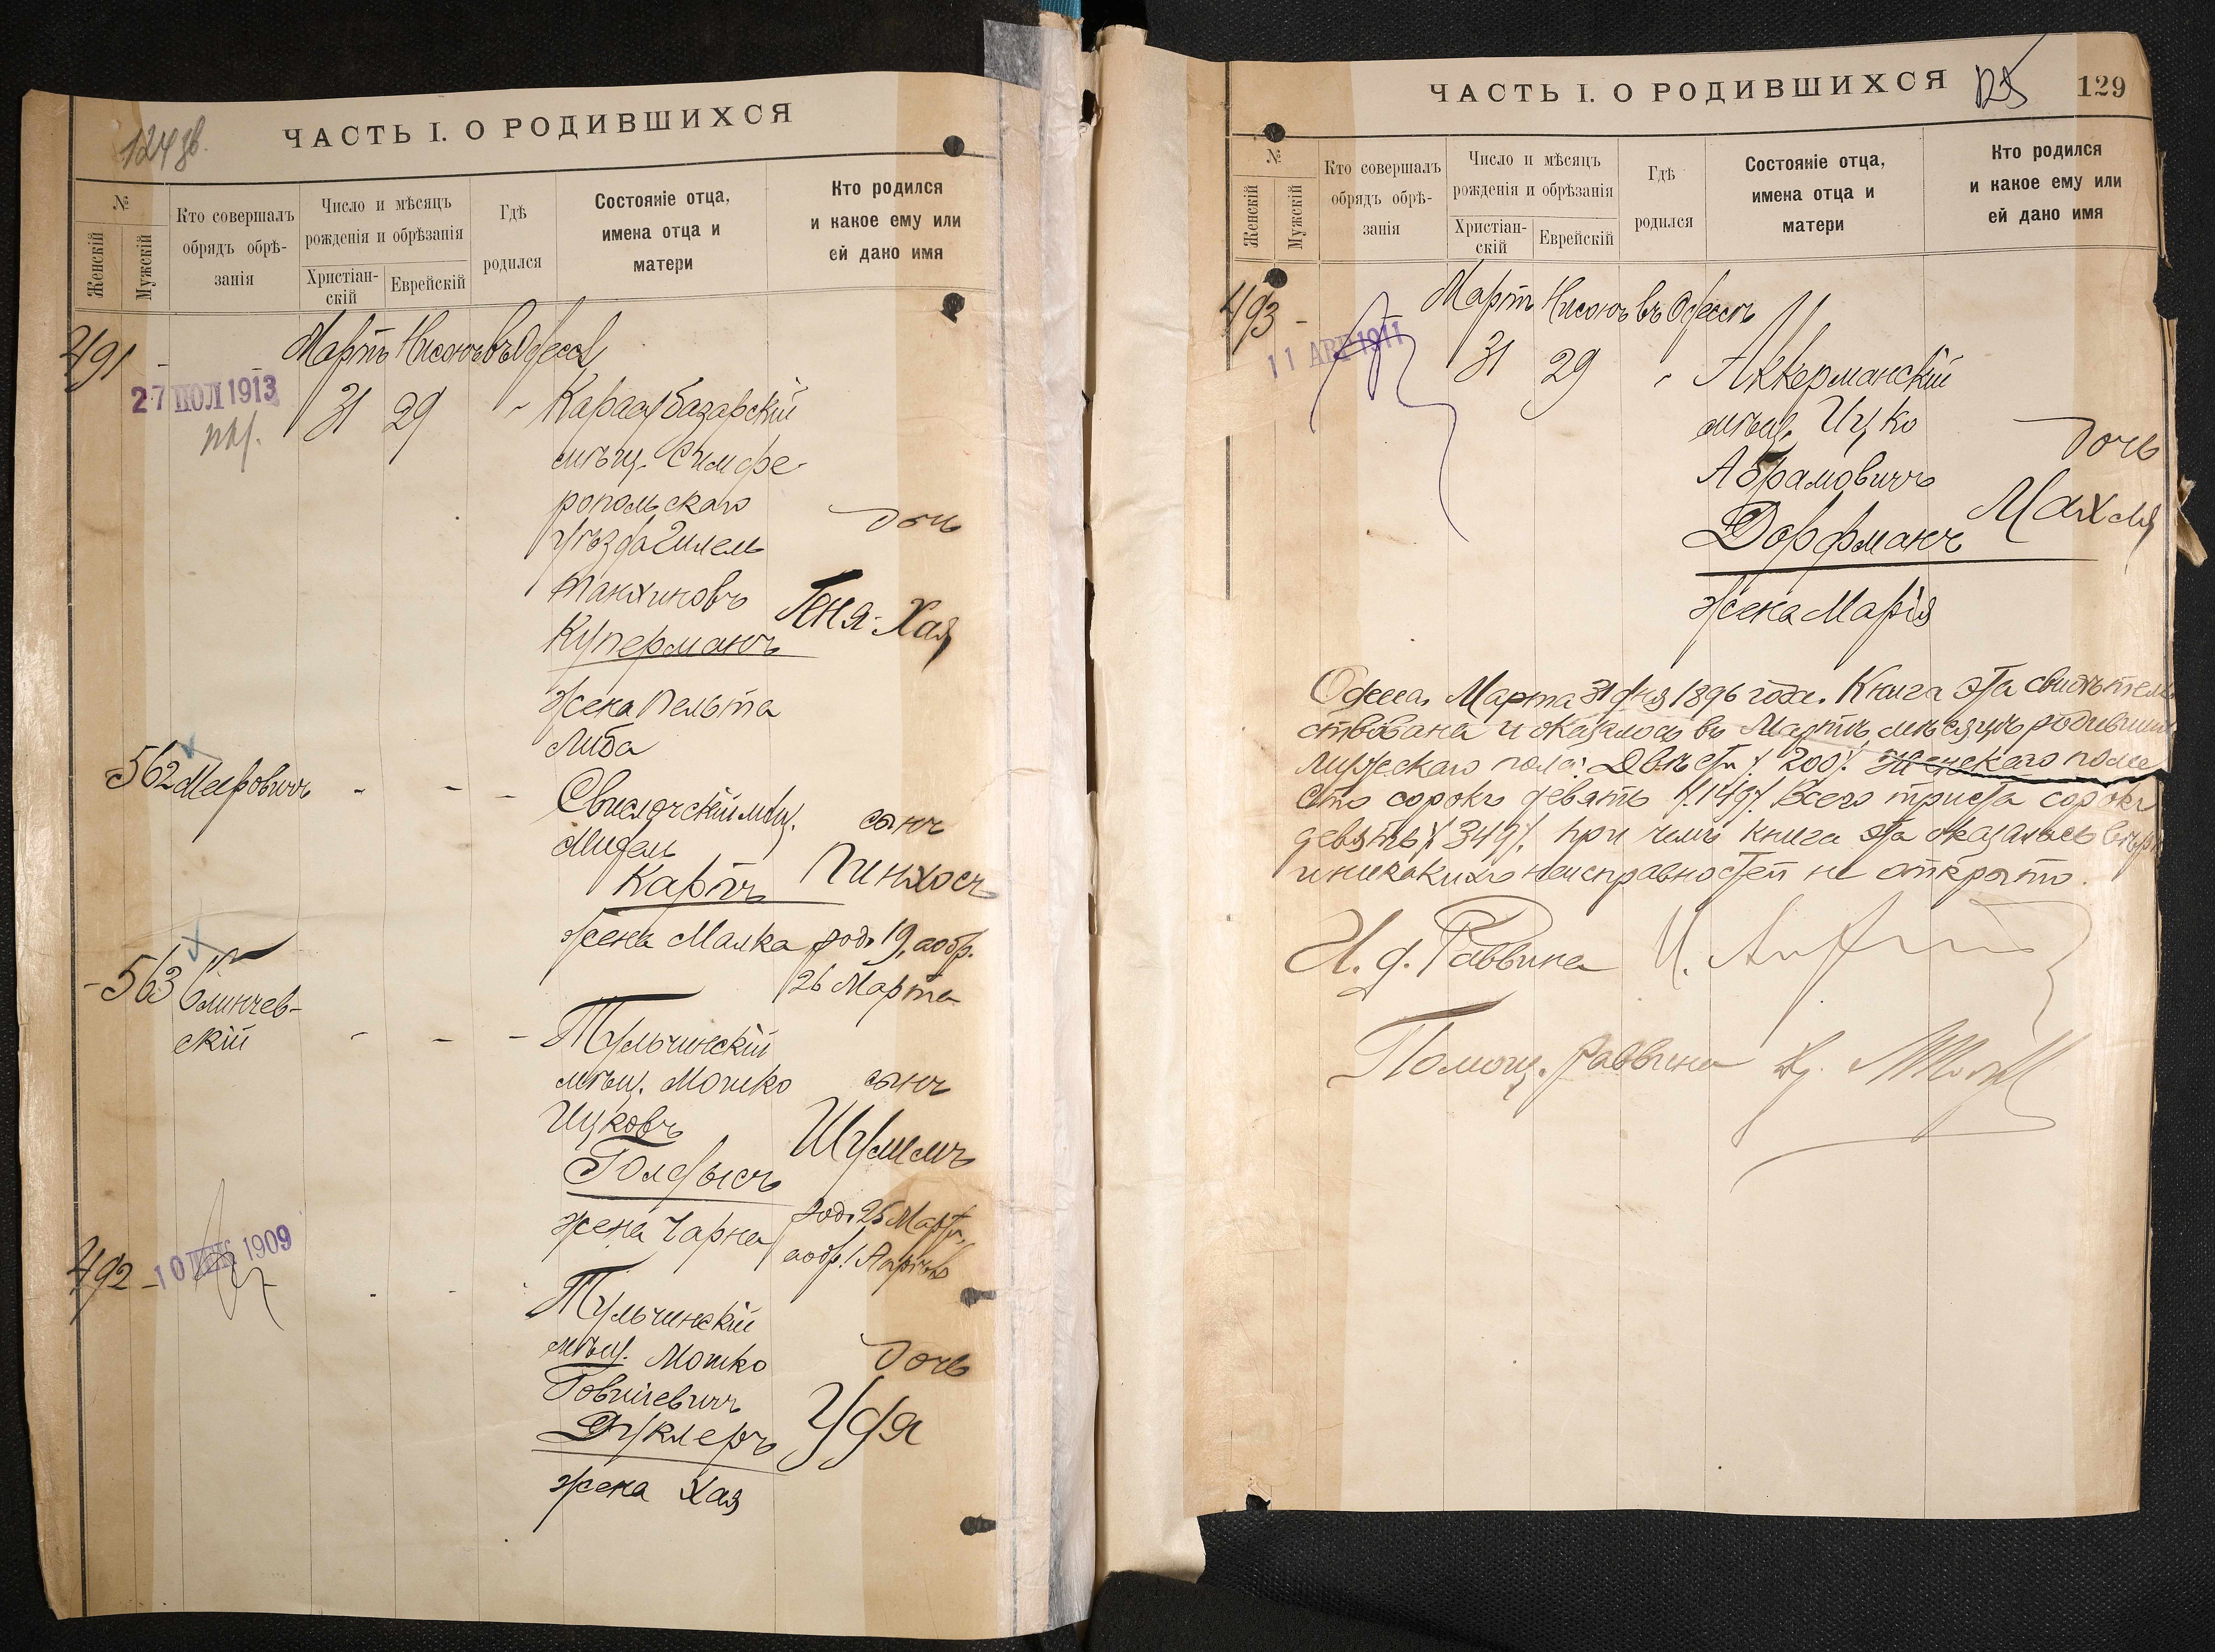 124 об.
ЧАСТЬ I. О РОДИВШИХСЯ
№
Женскій
Мужскій
Кто совершалъ
обрядъ обрѣ-
занія
Число и мѣсяцъ
рожденія и обрѣзанія
Христіан-
скій
Еврейскій
Гдѣ
родился
Состояніе отца,
имена отца и
матери
Кто родился
и какое ему или
ей дано имя
491 -
Мартъ Нисонъ въ Одессѣ
27 ІЮЛ 1913
31 29 "
Карасубазарскій
мѣщ. Симфе-
ропольскаго
уѣзда Гилель
Танхиновъ
Куперманъ
жена Пельта
Либа
дочь
Геня-Хая
562 Мееровичъ - - -
Свислочскій мѣщ.
Мидель
Карпъ
жена Малка
сынъ
Пинхосъ
род. 19, а обр.
26 Марта
- 563
скій - - -
Тульчинскій
мѣщ. Мошко
Ицковъ
Голдысъ
жена Чарна
сынъ
Шулимъ
род. 25 Март.,
а обр. 1 Апрѣля
492 -
10 1909
Тульчинскій
мѣщ. Мошко
Говшіевичъ
Дуклеръ
жена Хая
дочь
Удя
ЧАСТЬ I. О РОДИВШИХСЯ
125
129
№
Женскій
Мужскій
Кто совершалъ
обрядъ обрѣ-
занія
Число и мѣсяцъ
рожденія и обрѣзанія
Христіан-
скій
Еврейскій
Гдѣ
родился
Состояніе отца,
имена отца и
матери
Кто родился
и какое ему или
ей дано имя
493 -
Мартъ Нисонъ въ Одессѣ
11 АПР 1911
31 29 "
Аккерманскій
мѣщ. Ицко
Абрамовичъ
Дорфманъ
жена Марія
дочь
Махля
Одесса, Марта 31 дня 1896 года. Книга эта свидѣтель
ствована и оказалось въ Мартѣ мѣсяцѣ родивших
мужескаго пола: Двѣсти /200/. женскаго пола
Сто сорокъ девять /149/. Всего триста сорокъ
девять /349/. при чемъ книга эта оказалась вѣрн
и никакихъ неисправностей не открыто.
И. д. Раввина
Помощ. раввина